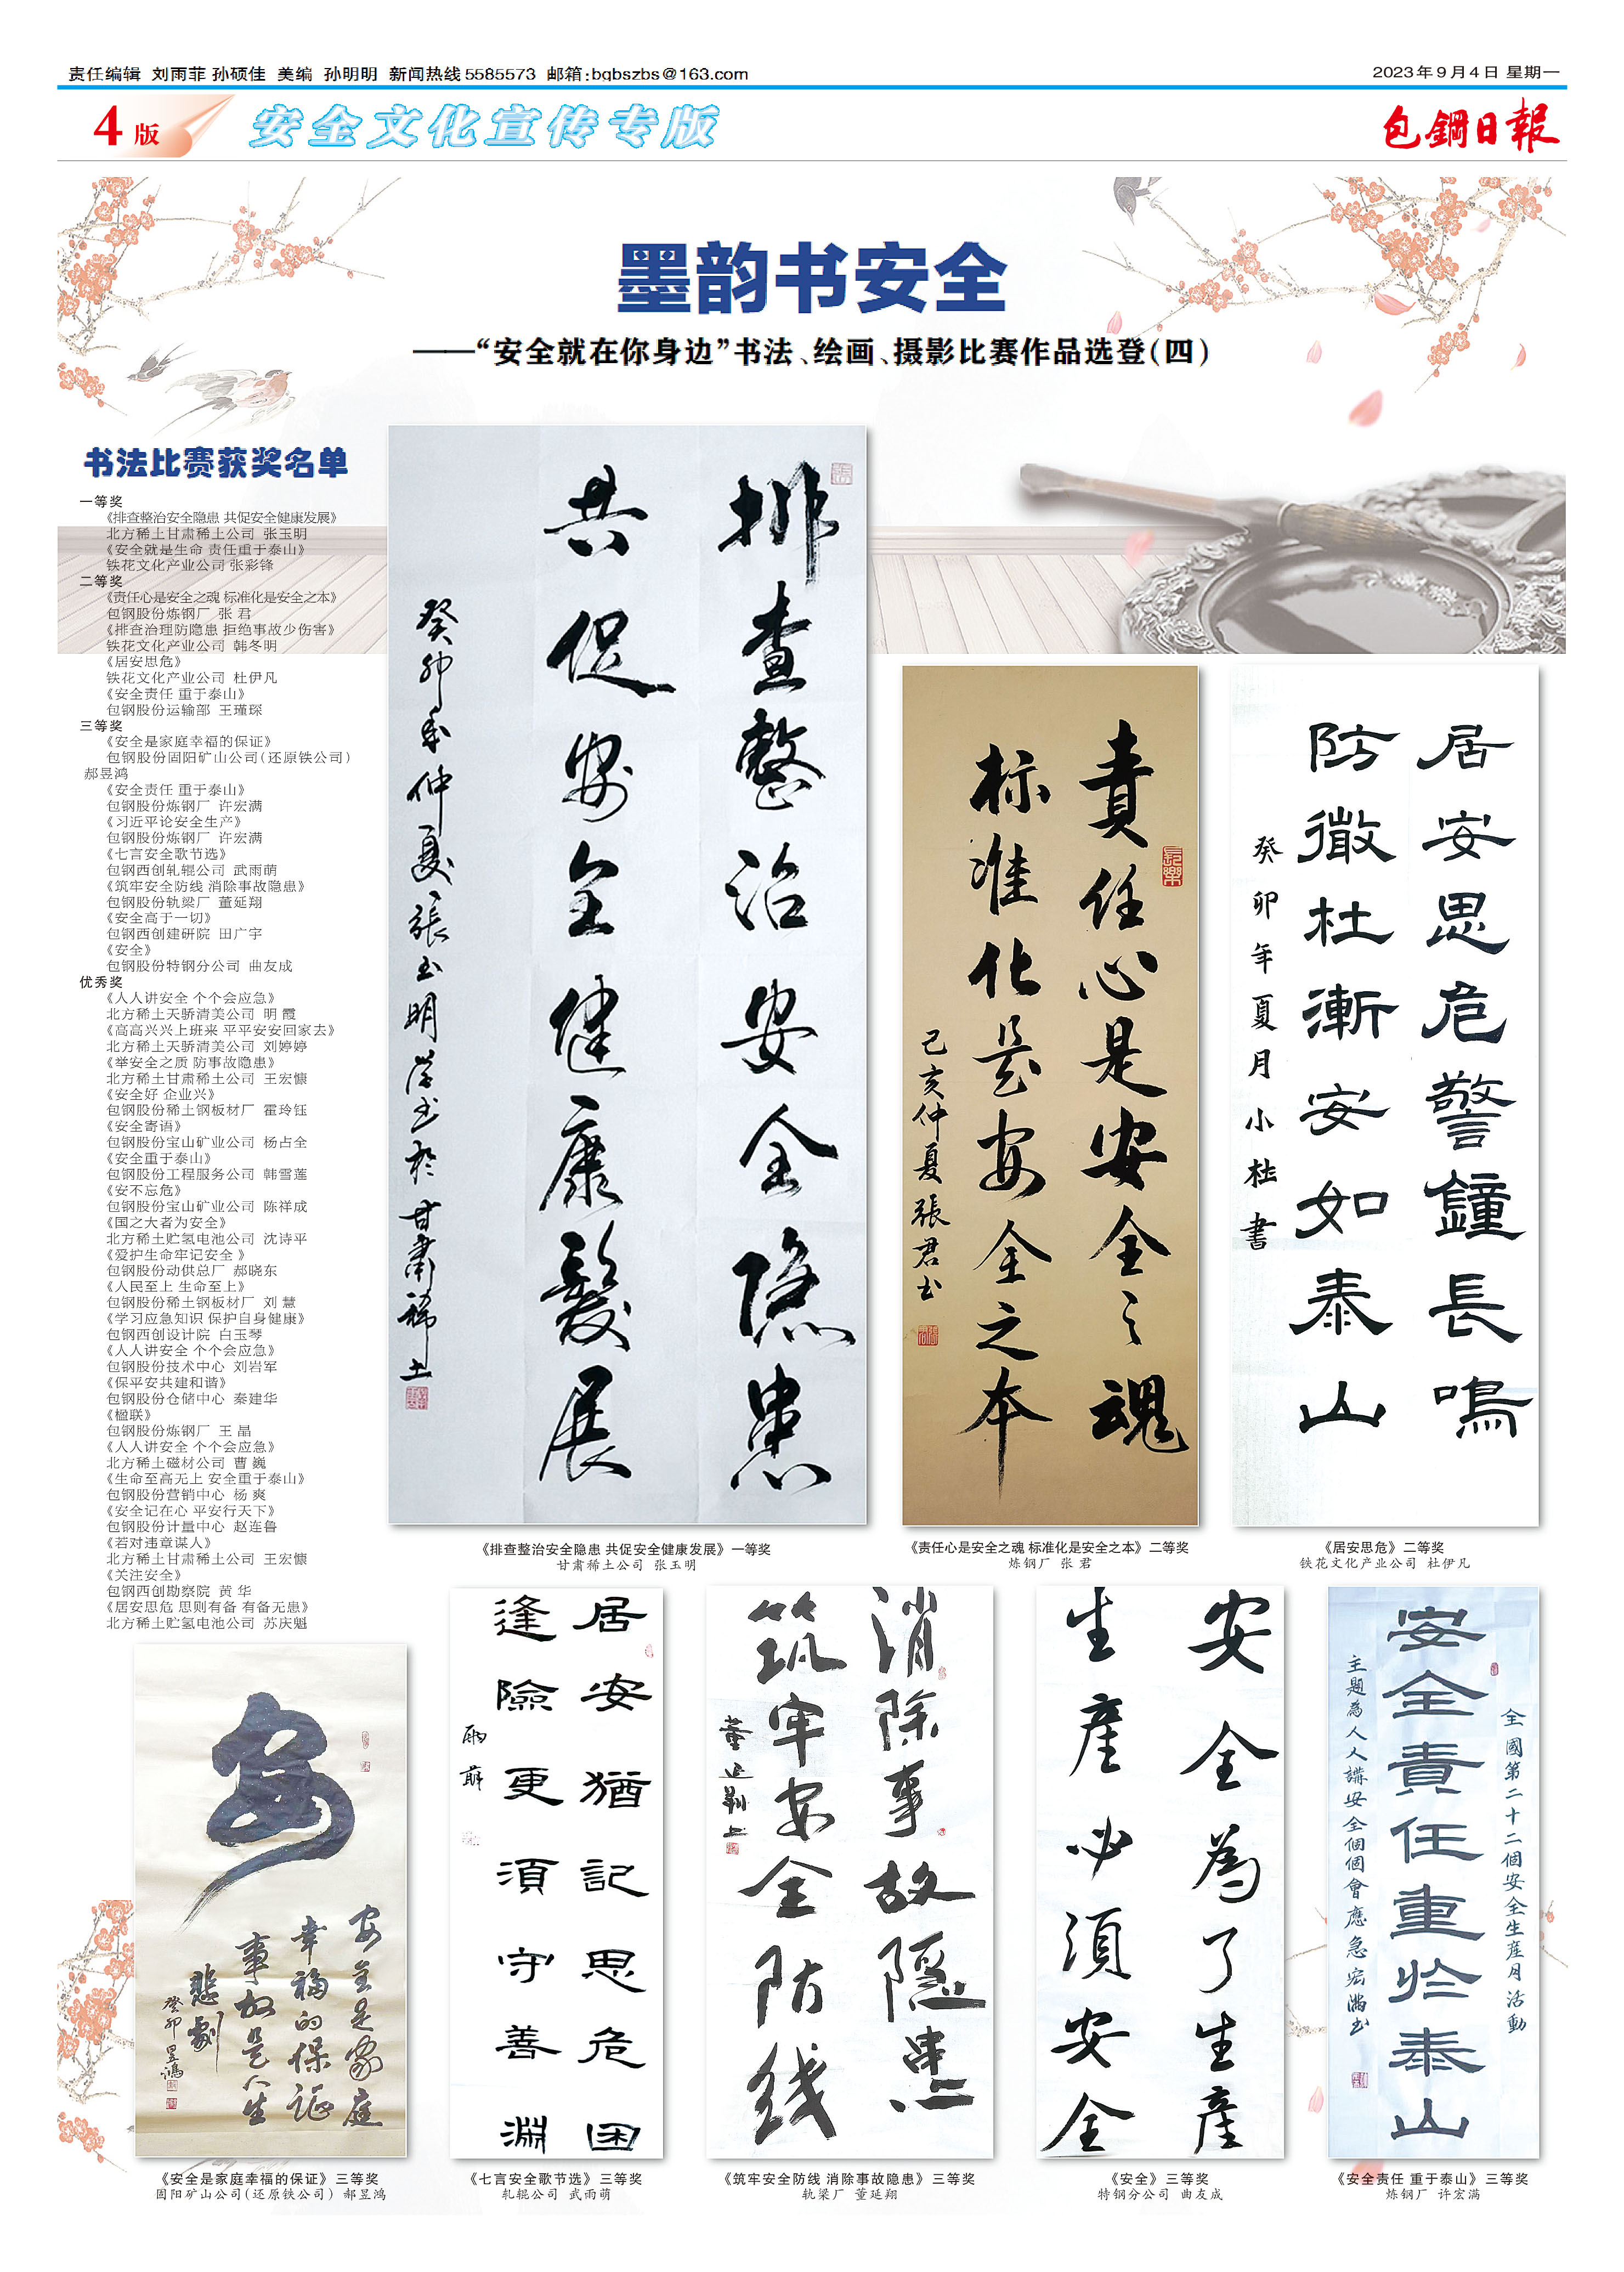 责任编辑 刘雨菲 孙硕佳 美编 孙明明 新闻热线5585573 邮箱:bgbszbs@163.com
2023年9月4日 星期一
4版
安全文化宣传专版
包鋼日報
墨韵书安全
——“安全就在你身边”书法、绘画、摄影比赛作品选登(四)
书法比赛获奖名单
一等奖
《排查整治安全隐患 共促安全健康发展》
北方稀土甘肃稀土公司 张玉明
《安全就是生命 责任重于泰山》
铁花文化产业公司 张彩锋
二等奖
《责任心是安全之魂 标准化是安全之本》
包钢股份炼钢厂 张 君
《排查治理防隐患 拒绝事故少伤害》
铁花文化产业公司 韩冬明
《居安思危》
铁花文化产业公司 杜伊凡
《安全责任 重于泰山》
包钢股份运输部 王瑾琛
三等奖
《安全是家庭幸福的保证》
包钢股份固阳矿山公司(还原铁公司)
郝昱鸿
《安全责任 重于泰山》
包钢股份炼钢厂 许宏满
《习近平论安全生产》
包钢股份炼钢厂 许宏满
《七言安全歌节选》
包钢西创轧辊公司 武雨萌
《筑牢安全防线 消除事故隐患》
包钢股份轨梁厂 董延翔
《安全高于一切》
包钢西创建研院 田广宇
《安全》
包钢股份特钢分公司 曲友成
优秀奖
《人人讲安全 个个会应急》
北方稀土天骄清美公司 明 霞
《高高兴兴上班来 平平安安回家去》
北方稀土天骄清美公司 刘婷婷
《举安全之质 防事故隐患》
北方稀土甘肃稀土公司 王宏慷
《安全好 企业兴》
包钢股份稀土钢板材厂 霍玲钰
《安全寄语》
包钢股份宝山矿业公司 杨占全
《安全重于泰山》
包钢股份工程服务公司 韩雪莲
《安不忘危》
包钢股份宝山矿业公司 陈祥成
《国之大者为安全》
北方稀土贮氢电池公司 沈诗平
《爱护生命牢记安全 》
包钢股份动供总厂 郝晓东
《人民至上 生命至上》
包钢股份稀土钢板材厂 刘 慧
《学习应急知识 保护自身健康》
包钢西创设计院 白玉琴
《人人讲安全 个个会应急》
包钢股份技术中心 刘岩军
《保平安共建和谐》
包钢股份仓储中心 秦建华
《楹联》
包钢股份炼钢厂 王 晶
《人人讲安全 个个会应急》
北方稀土磁材公司 曹 巍
《生命至高无上 安全重于泰山》
包钢股份营销中心 杨 爽
《安全记在心 平安行天下》
包钢股份计量中心 赵连鲁
《若对违章谋人》
北方稀土甘肃稀土公司 王宏慷
《关注安全》
包钢西创勘察院 黄 华
《居安思危 思则有备 有备无患》
北方稀土贮氢电池公司 苏庆魁
排查整治安全隐患
共促安全健康發展
癸卯年仲夏張玉明学书於甘肅稀土
《排查整治安全隐患 共促安全健康发展》一等奖
甘肃稀土公司 张玉明
責任心是安全之魂
标准化是安全之本
己亥仲夏張君书
《责任心是安全之魂 标准化是安全之本》二等奖
炼钢厂 张 君
居安思危警鐘長鳴
防徵杜漸安如泰山
癸卯年夏月小杜書
《居安思危》二等奖
铁花文化产业公司 杜伊凡
安
安全是家庭
幸福的保证
事故是人生
悲劇
癸卯昱鴻
《安全是家庭幸福的保证》三等奖
固阳矿山公司(还原铁公司) 郝昱鸿
居安猶記思危困
逢險更須守善淵
雨萌
《七言安全歌节选》三等奖
轧辊公司 武雨萌
消除事故隐患
筑牢安全防线
董延翔书
《筑牢安全防线 消除事故隐患》三等奖
轨梁厂 董延翔
安全為了生産
生産必須安全
《安全》三等奖
特钢分公司 曲友成
全國第二十二個安全生産月活動
安全責任重於泰山
主題為人人講安全個個會應急宏滿书
《安全责任 重于泰山》三等奖
炼钢厂 许宏满